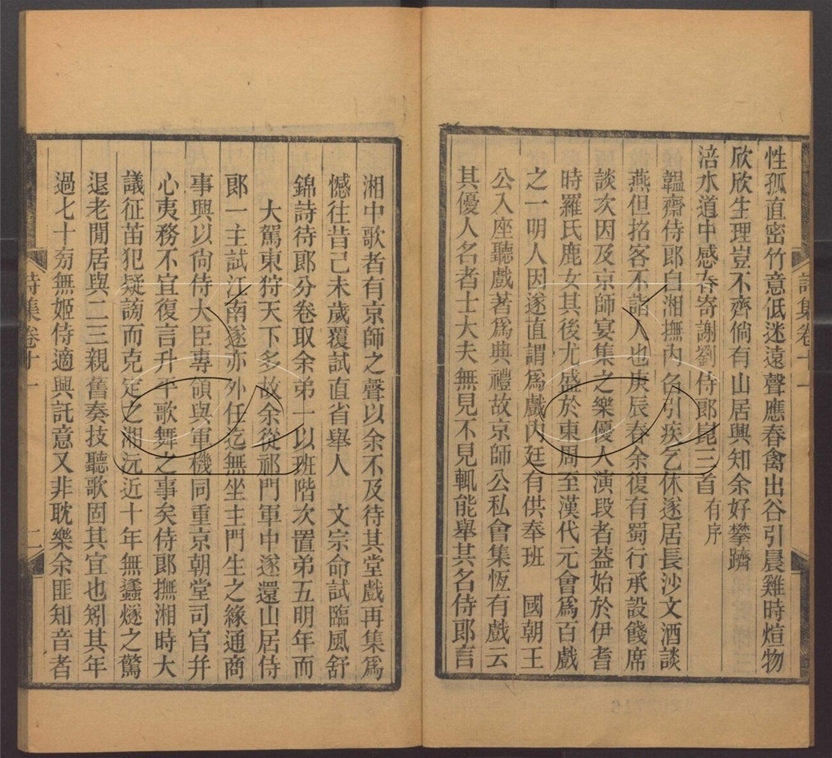 性孤直密竹意低迷遠聲應春禽出谷引晨雞時煊物
欣欣生理豈不齊倘有山居興知余好攀躋
涪水道中感春寄謝劉侍郎崑三首 有序
韞齋侍郎自湘撫內召引疾乞休遂居長沙文酒談
燕但招客不詣人也庚辰春余復有蜀行承設餞席
談次因及京師宴集之樂優人演段者葢始於伊耆
時羅氏鹿女其後尤盛於東周至漢代元會爲百戲
之一明人因遂直謂爲戲內廷有供奉班 國朝王
公入座聽戲著爲典禮故京師公私會集恆有戲云
其優人名者士大夫無見不見輒能舉其名侍郎言
湘中歌者有京師之聲以余不及待其堂戲再集爲
憾往昔己未歲覆試直省舉人 文宗命試臨風舒
錦詩待郎分卷取余弟一以班階次置弟五明年而
大駕東狩天下多故余從祁門軍中遂還山居侍
郎一主試江南遂亦外任迄無坐主門生之緣通商
事興以尙侍大臣專領與軍機同重京朝堂司官幷
心夷務不宜復言升平歌舞之事矣侍郎撫湘時大
議征苗犯疑謗而克定之湘沅近十年無蠭燧之驚
退老閒居與二三親舊奏技聽歌固其宜也矧其年
過七十㫄無姬侍適興託意又非耽樂余匪知音者
詩集卷十一
詩集卷十一
二